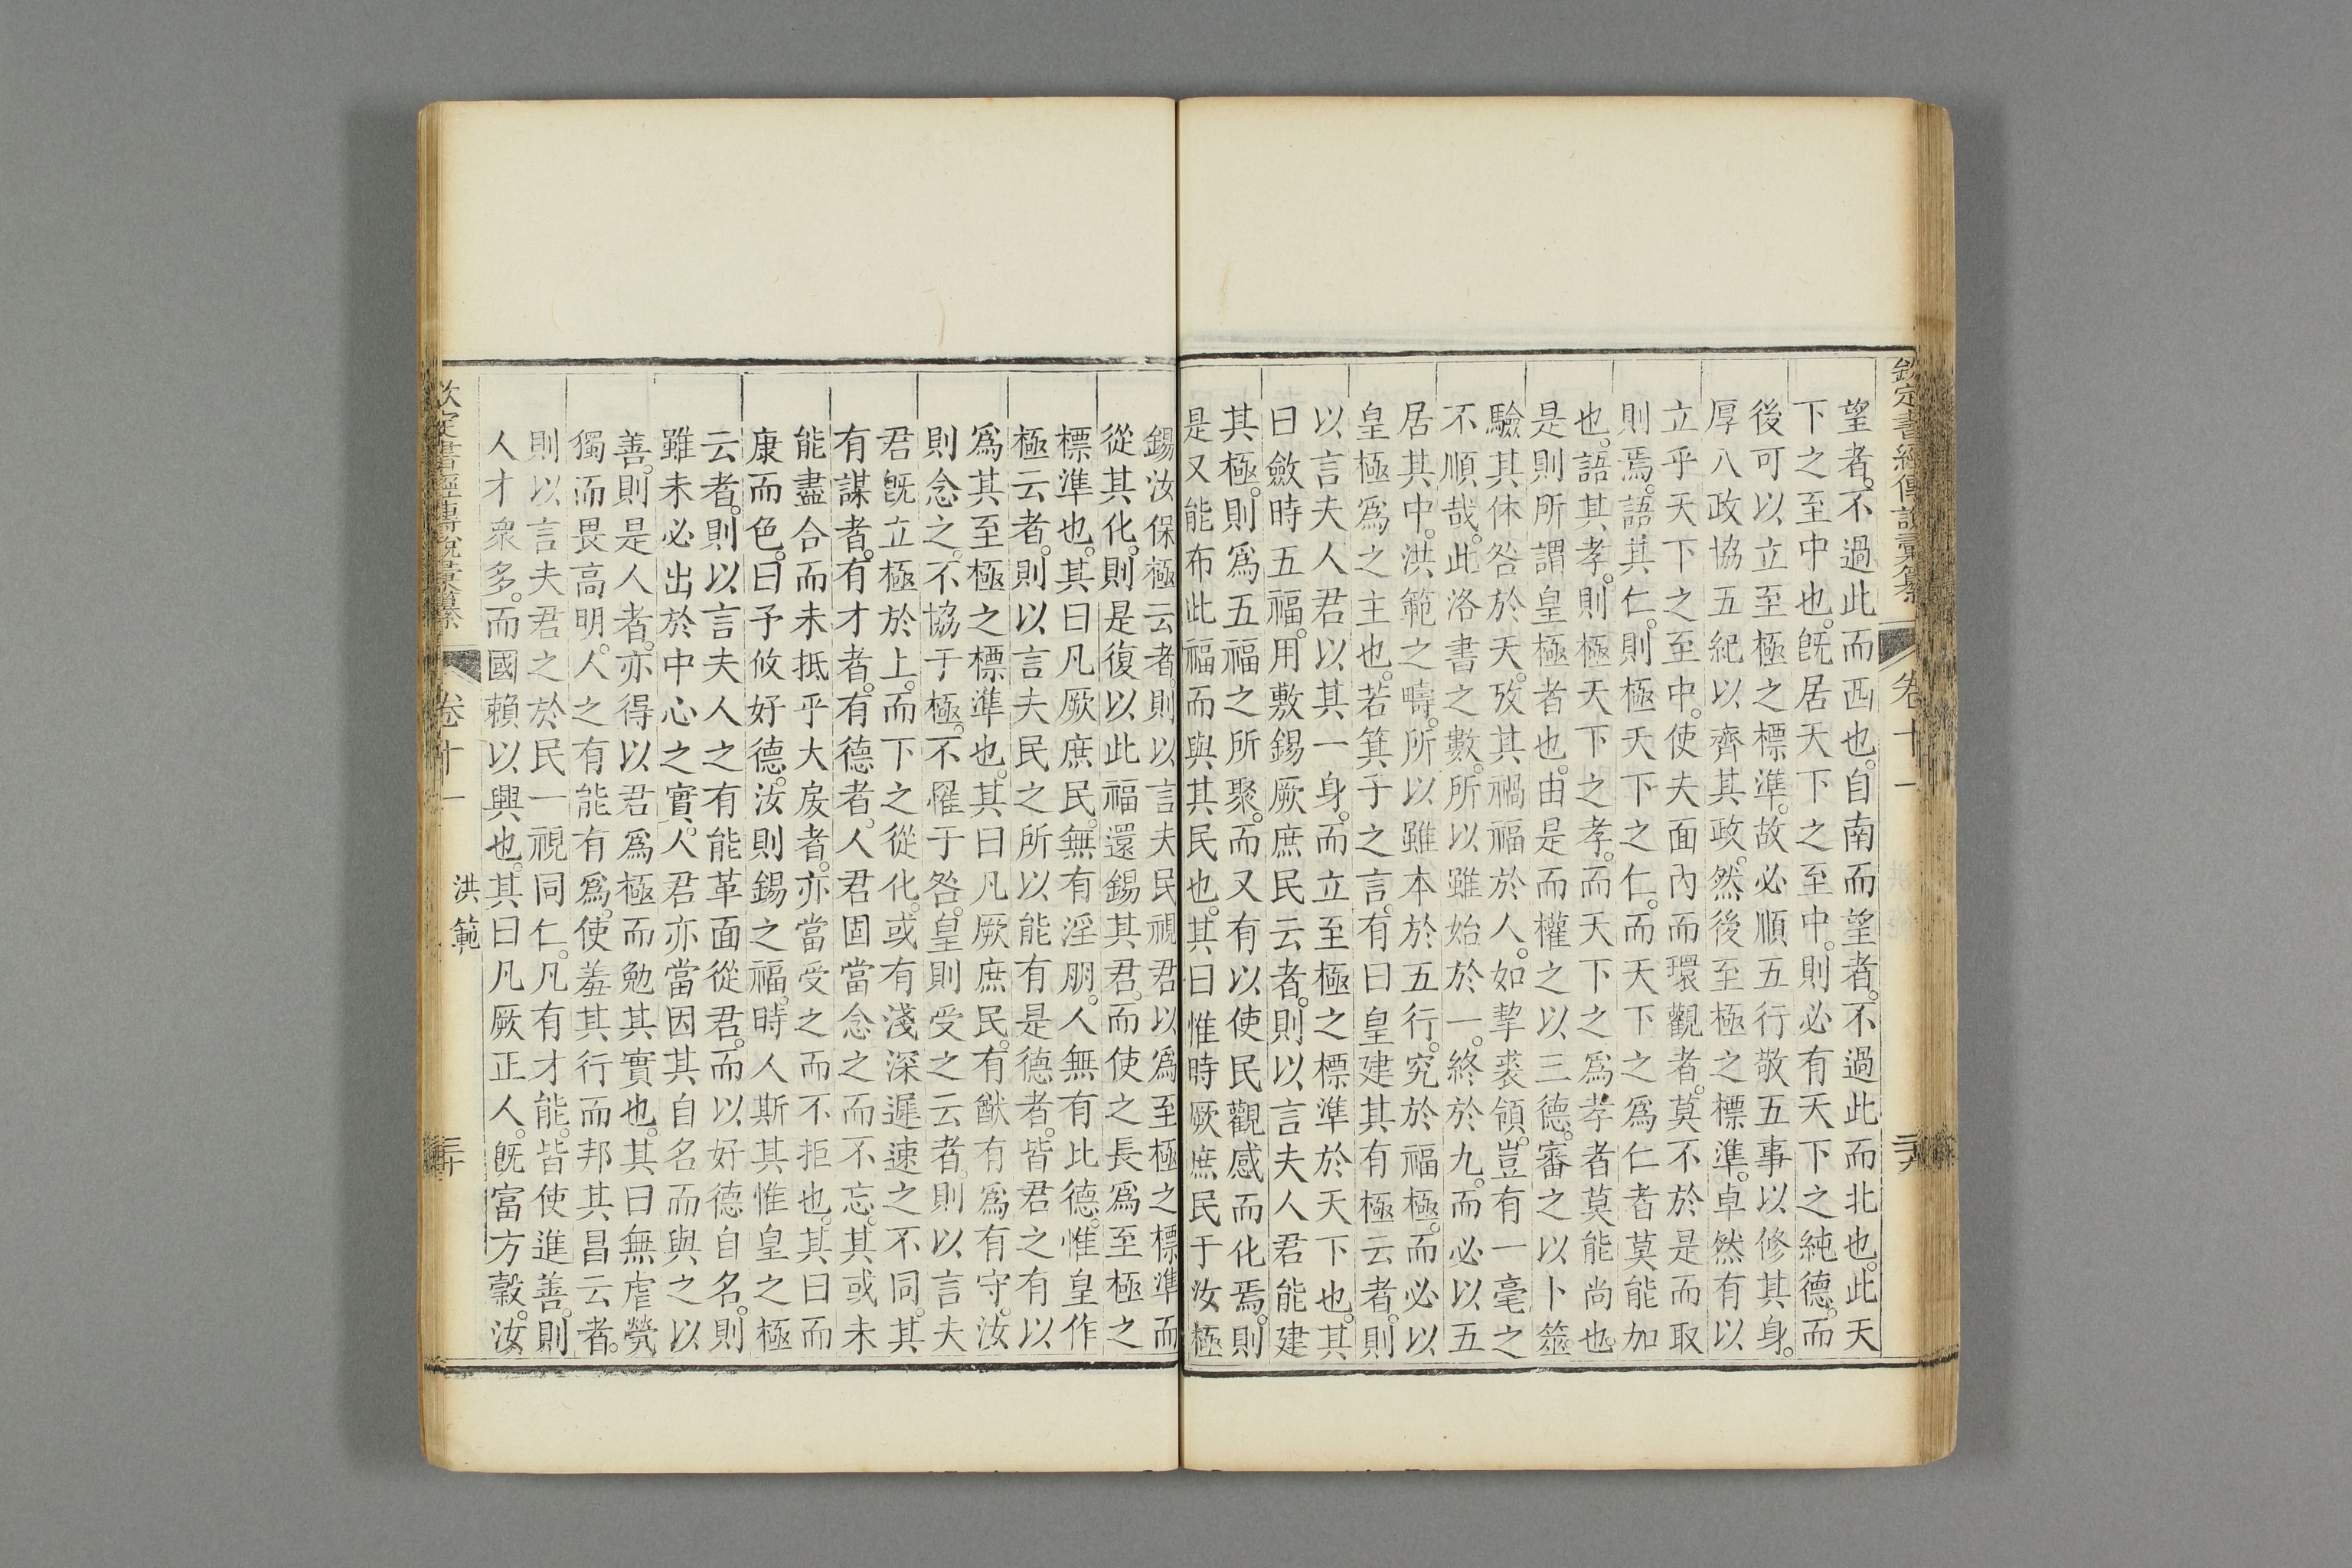 欽定書經傳說彙纂 卷十一
望者。不過此而西也。自南而望者。不過此而北也。此天
下之至中也。旣居天下之至中。則必有天下之純德。而
後可以立至極之標準。故必順五行敬五事以修其身。
厚八政協五紀以齊其政。然後至極之標準。卓然有以
立乎天下之至中。使夫面內而環觀者。莫不於是而取
則焉。語其仁。則極天下之仁。而天下之爲仁者莫能加
也。語其孝。則極天下之孝。而天下之爲孝者莫能尚也。
是則所謂皇極者也。由是而權之以三德。審之以卜筮。
驗其休咎於天。攷其禍福於人。如挈裘領。豈有一毫之
不順哉。此洛書之數。所以雖始於一。終於九。而必以五
居其中。洪範之疇。所以雖本於五行。究於福極。而必以
皇極爲之主也。若箕子之言。有曰皇建其有極云者。則
以言夫人君以其一身。而立至極之標準於天下也。其
曰斂時五福。用敷錫厥庶民云者。則以言夫人君能建
其極。則爲五福之所聚。而又有以使民觀感而化焉。則
是又能布此福而與其民也。其曰惟時厥庶民于汝極
錫汝保極云者。則以言夫民視君以爲至極之標準而
從其化。則是復以此福還錫其君。而使之長爲至極之
標準也。其曰凡厥庶民。無有淫朋。人無有比德。惟皇作
極云者。則以言夫民之所以能有是德者。皆君之有以
爲其至極之標準也。其曰凡厥庶民。有猷有爲有守。汝
則念之。不協于極。不罹于咎。皇則受之云者。則以言夫
君旣立極於上。而下之從化。或有淺深遲速之不同。其
有謀者。有才者。有德者。人君固當念之而不忘。其或未
能盡合而未抵乎大戾者。亦當受之而不拒也。其曰而
康而色。曰予攸好德。汝則錫之福。時人斯其惟皇之極
云者。則以言夫人之有能革面從君。而以好德自名。則
雖未必出於中心之實。人君亦當因其自名而與之以
善。則是人者。亦得以君爲極而勉其實也。其曰無虐煢
獨而畏高明。人之有能有爲。使羞其行而邦其昌云者。
則以言夫君之於民一視同仁。凡有才能。皆使進善。則
人才衆多。而國賴以興也。其曰凡厥正人。旣富方穀。汝
欽定書經傳說彙纂 卷十一 洪範 三十